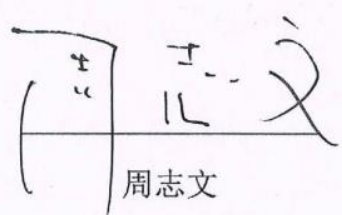 周志文
周志文